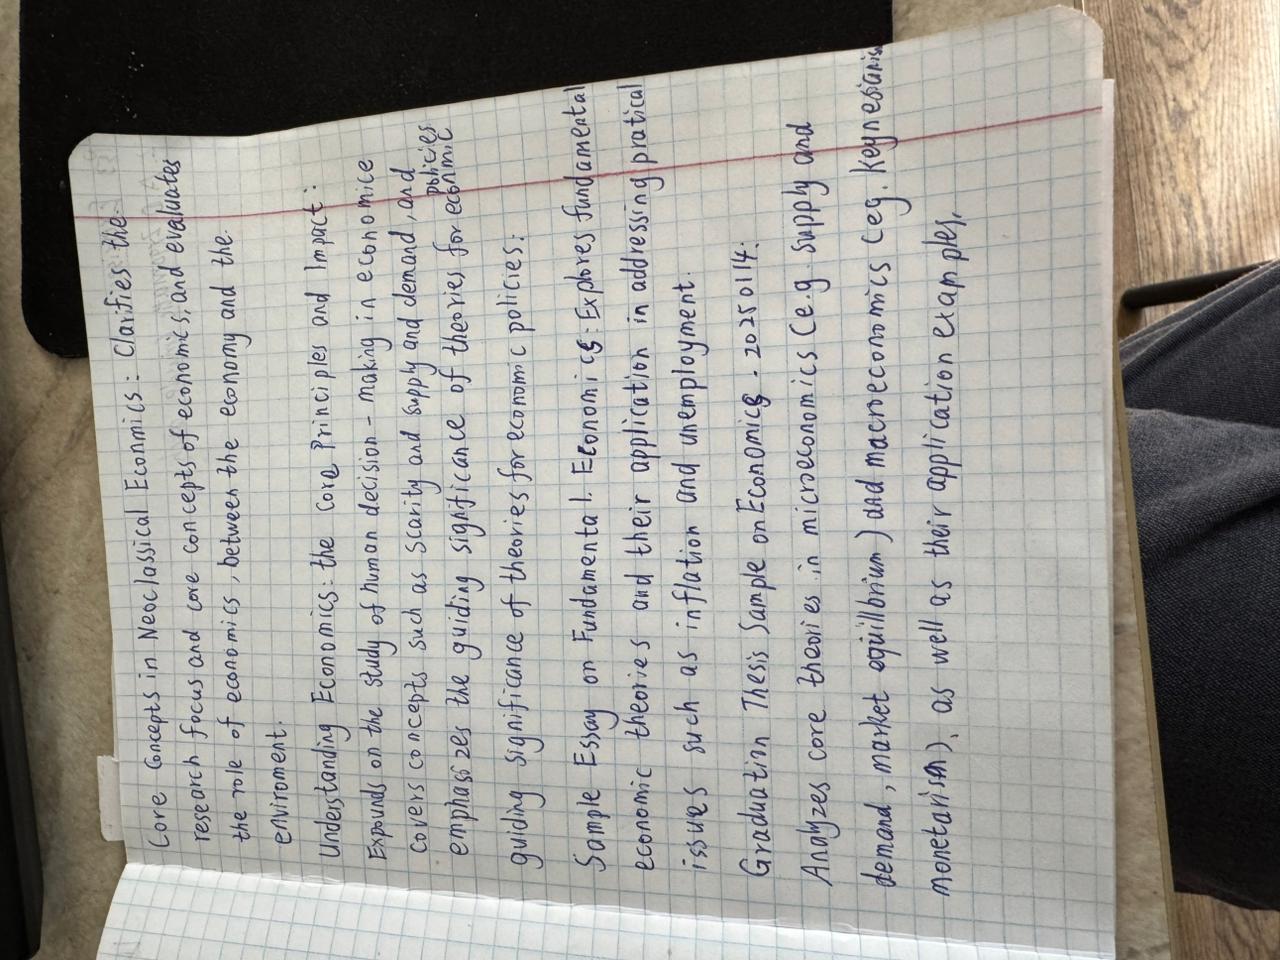 Core Concepts in Neoclassical Econmics: Clarifies the
research focus and core concepts of economics, and evaluates
the role of economics, between the economy and the
enviroment.
Understanding Economics: the Core Principles and Impact:
Expounds on the study of human decision-making in economice
covers concepts such as scarity and supply and demand, and
policies
emphasizes the guiding significance of theories for econmic
guiding significance of theories for economic policies.
Sample Essay on Fundamental. Economics: Explores fundamental
economic theories and their application in addressing pratical
issues such as inflation and unemployment.
Graduation Thesis Sample on Economics - 20250114:
Analyzes core theories in microeconomics (e.g. supply and
demand, market equillbrium) and macroeconomics (eg. Keynesianism
monetarism), as well as their application examples,